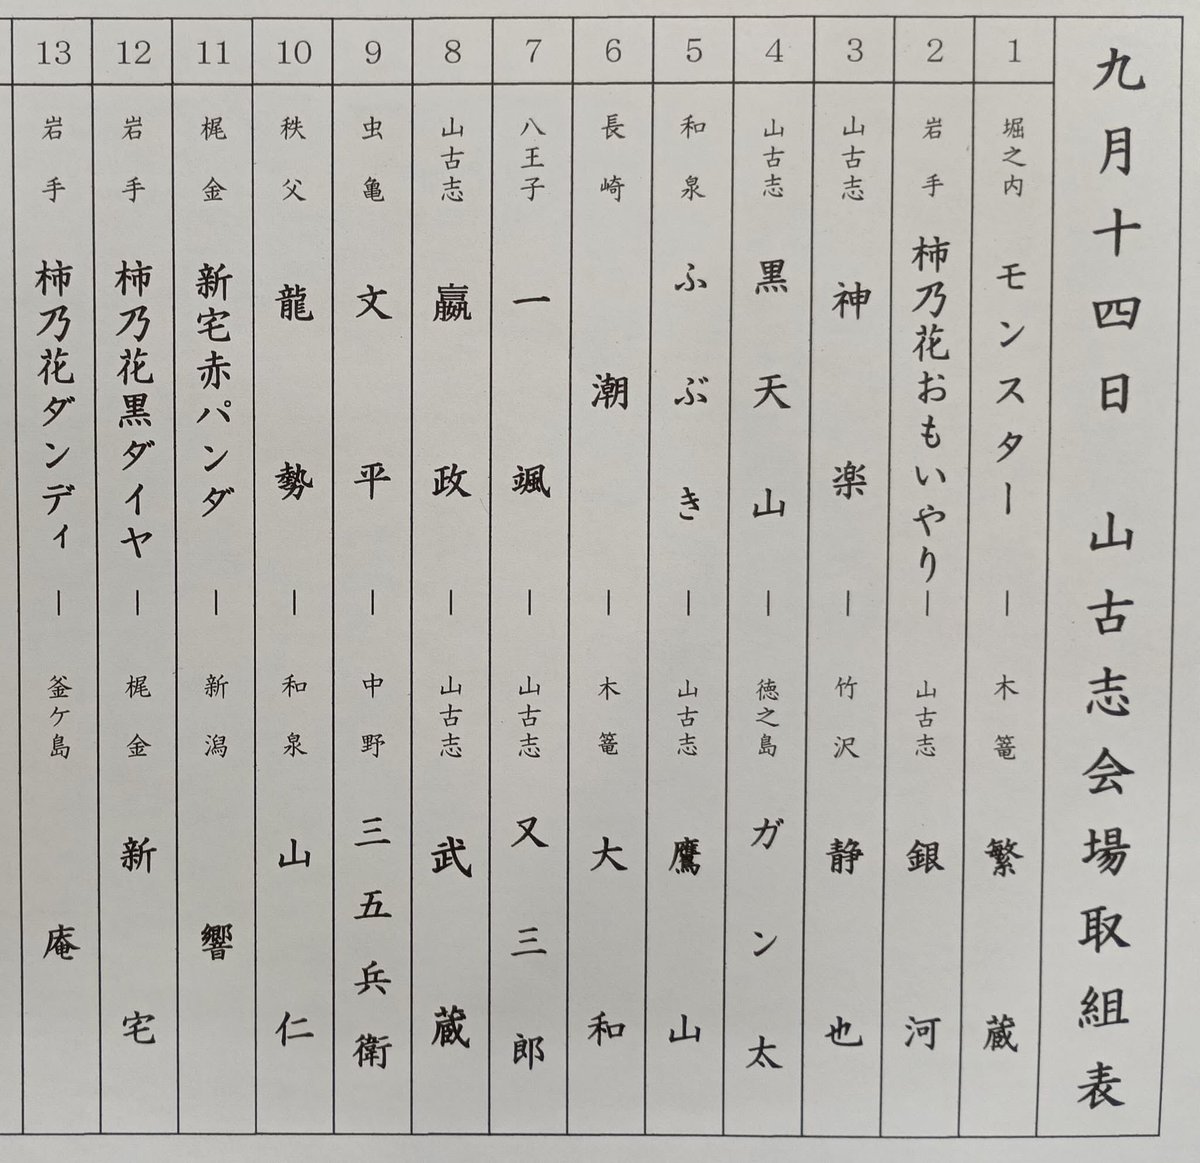 九月十四日 山古志会場取組表
1 堀之内 モンスター ー 木篭 繁蔵
2 岩手 柿乃花おもいやり ー 山古志 銀河
3 山古志 神楽 ー 竹沢 静也
4 山古志 黒天山 ー 徳之島 ガンガン太
5 和泉 ふぶき ー 山古志 鷹山
6 長崎 潮 ー 木篭 大和
7 八王子 一颯 ー 山古志 又三郎
8 山古志 嬴政 ー 山古志 武蔵
9 虫亀 文平 ー 中野 三五兵衛
10 秩父 龍勢 ー 和泉 山仁
11 梶金 新宅赤パンダ ー 新潟 響
12 岩手 柿乃花黒ダイヤ ー 梶金 新宅
13 岩手 柿乃花ダンディ ー 釜ケ島 庵